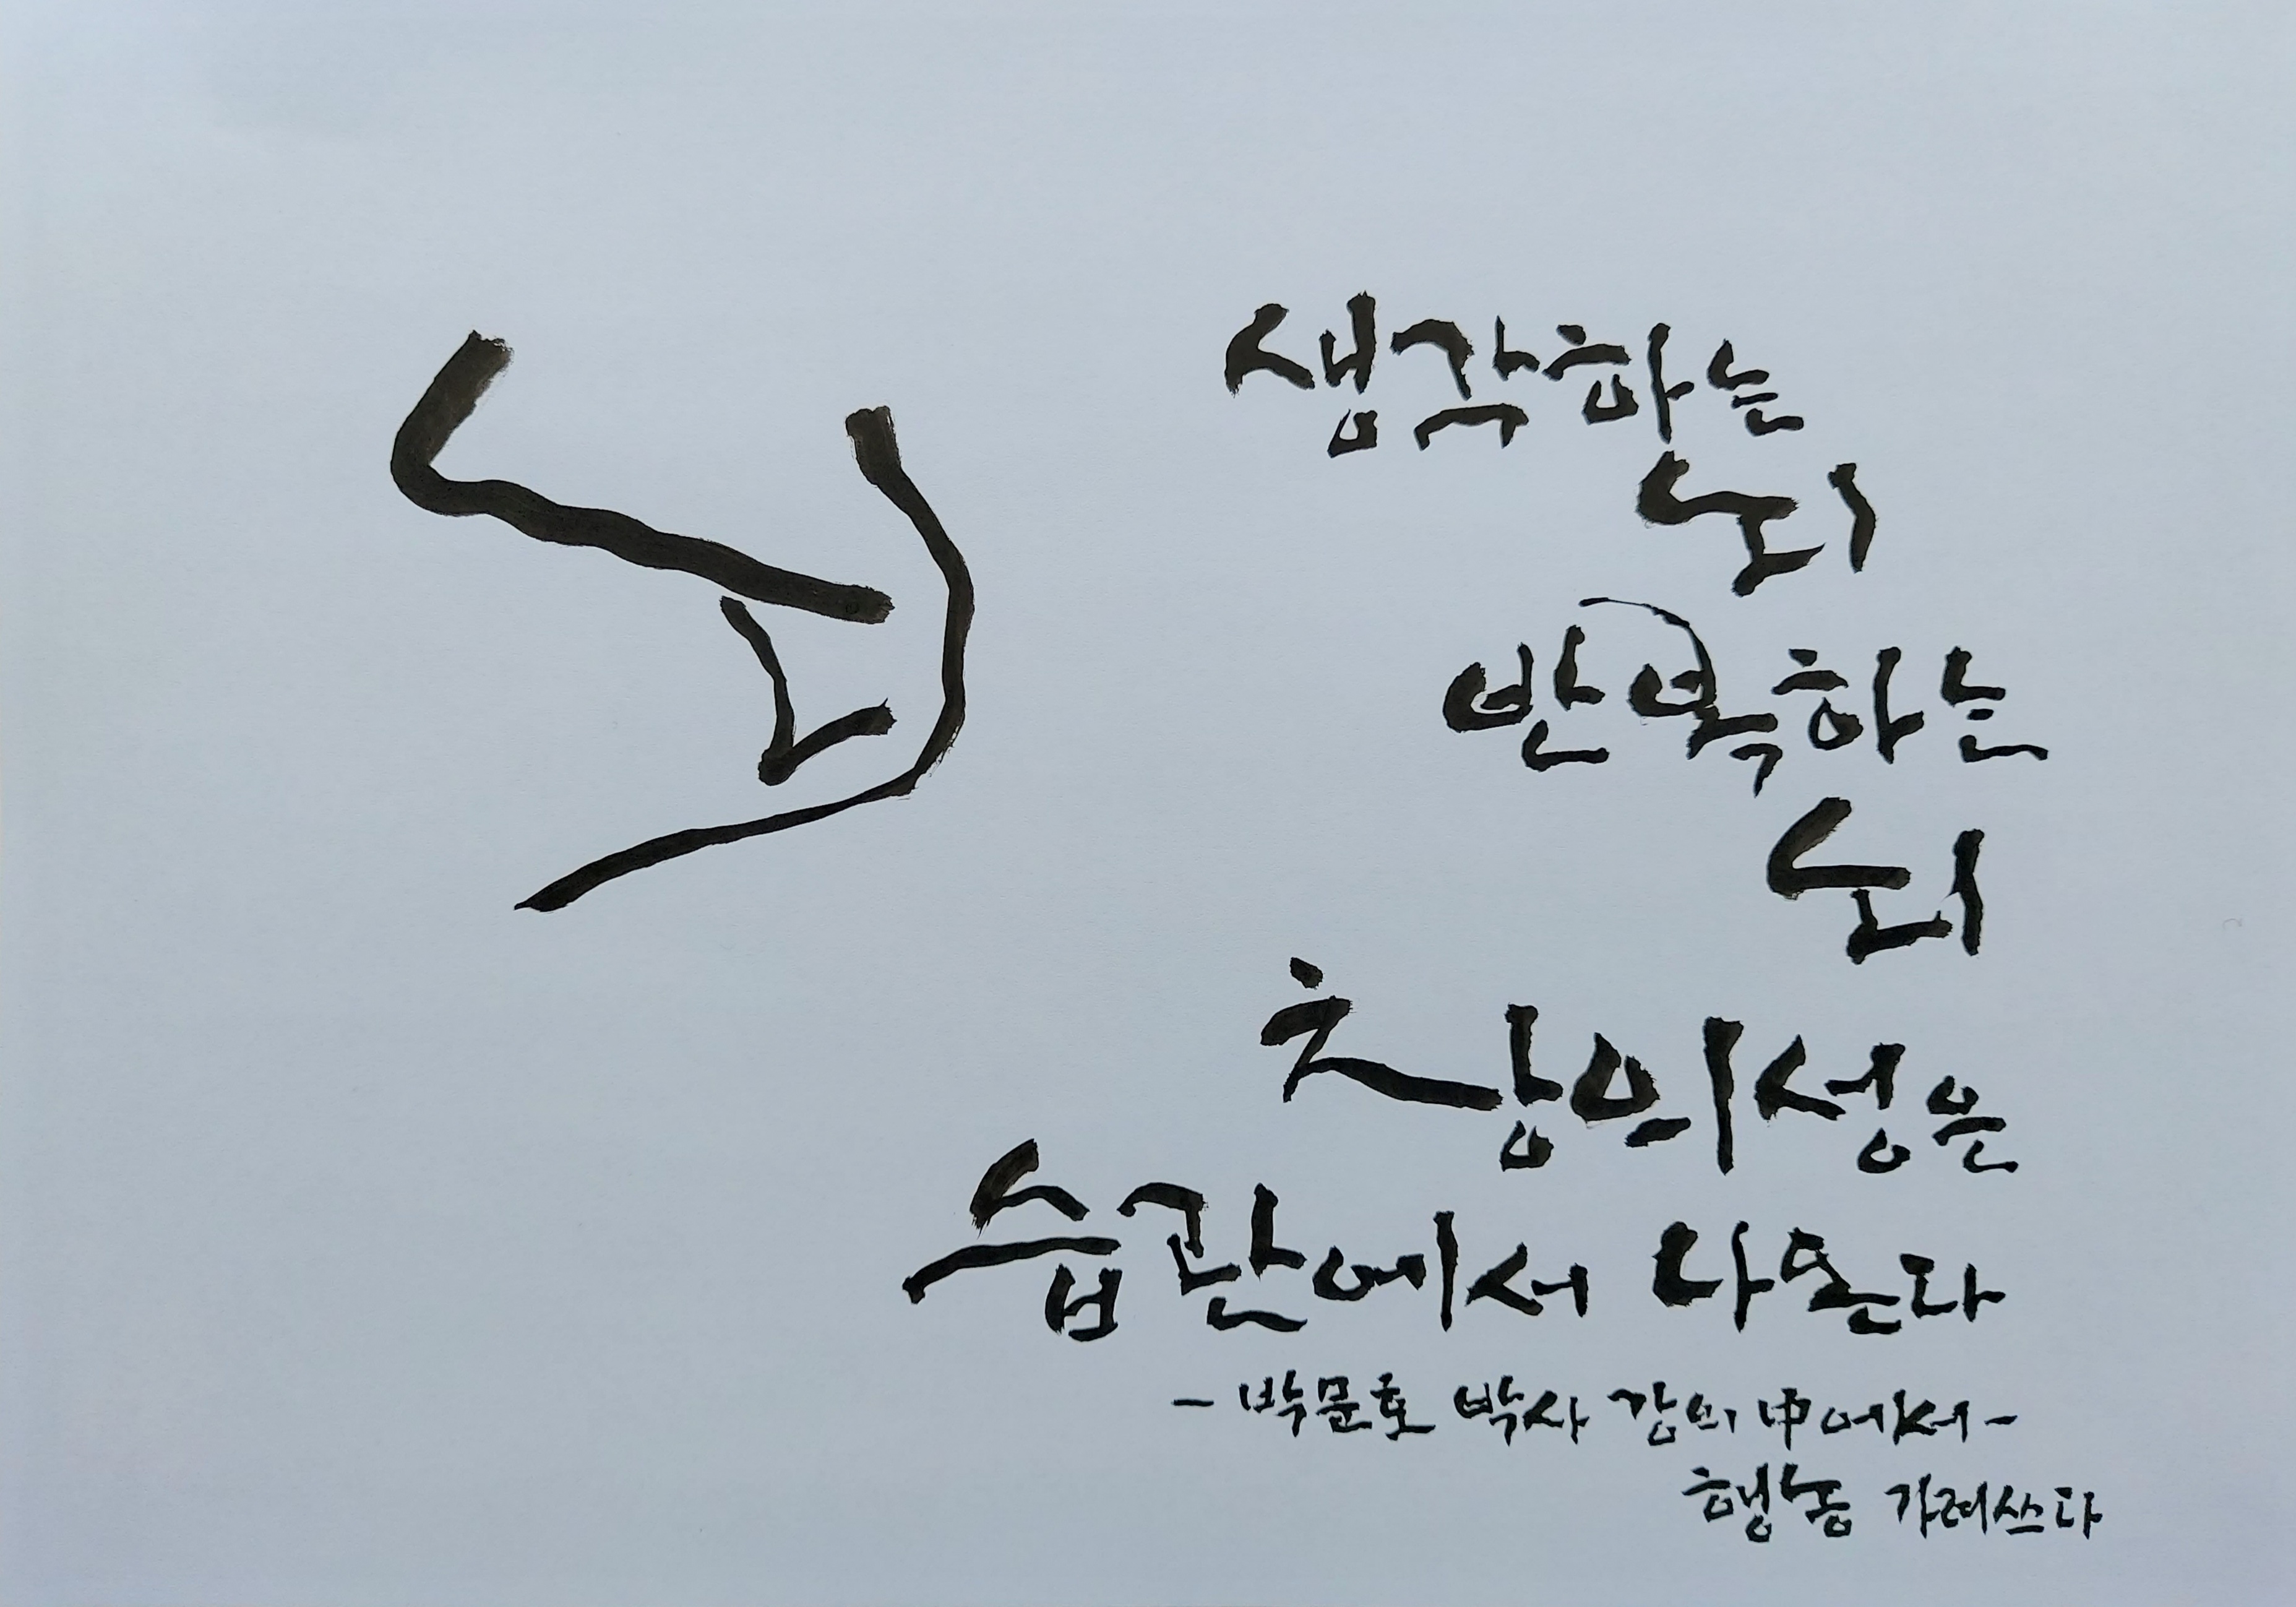 뇌
생각하는
뇌
반복하는
뇌
창의성은
습관에서 나온다
- 박문호 박사 강의 中에서 -
행농 가려쓰다